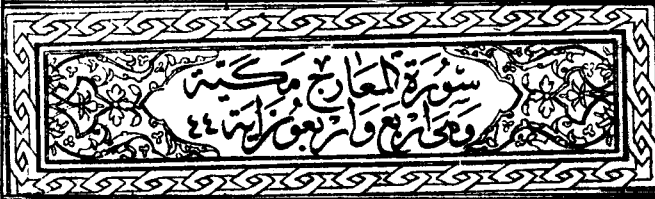 سُورَةُ المَعَارِجِ مَكِّيَّة
وَهِيَ ارْبَعٌ وَارْبَعُونَ اٰيَة ٤٤